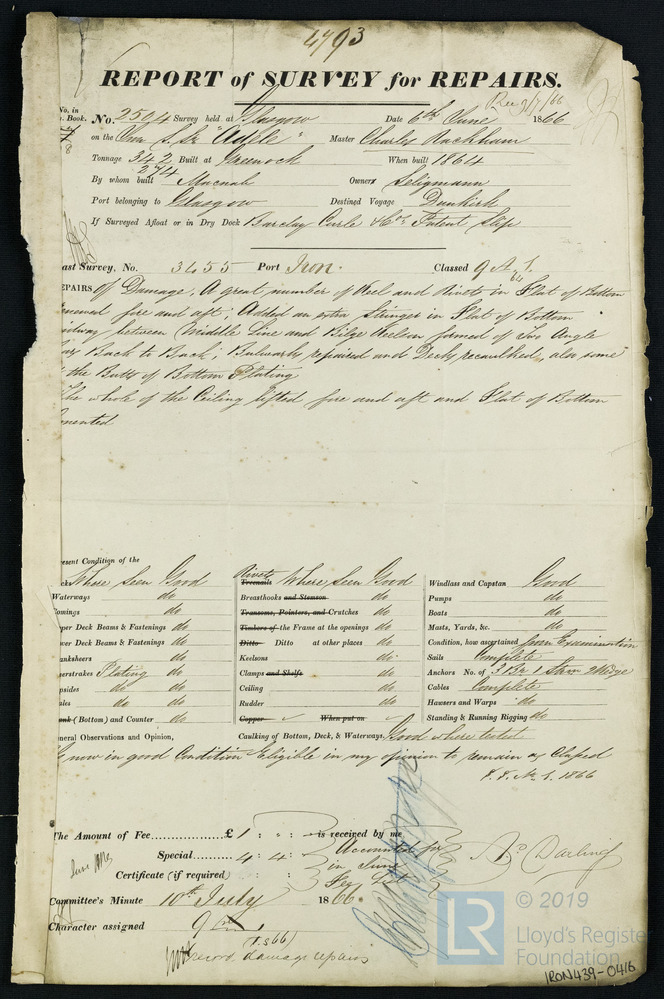 4793
REPORT of SURVEY for REPAIRS.
Rec 9/7/66
No. in
Book. No. 2504 Survey held at Glasgow Date 6th June 1866
on the Iron S. Sr "Adele" Master Charles Rackham
Tonnage 342 Built at Greenock When built 1864
274
By whom built Macnab Owners Seligmann
Port belonging to Glasgow Destined Voyage Dunkirk
If Surveyed Afloat or in Dry Dock Barclay Curle & Co's Patent Slip
ast Survey, No. 3455 Port Iron. Classed 9 A. 1.
64
EPAIRS of Damage, A great number of Keel and Rivets in Flat of Bottom
enewed fore and aft; Added an extra Stringer in Flat of Bottom
idway between Middle Line and Bilge Keelson formed of Two Angle
Back to Back; Bulwarks repaired and Decks recaulked, also some
the Butts of Bottom Plating
The whole of the Ceiling lifted fore and aft and Flat of Bottom
emented
resent Condition of the
ecks Where seen Good
Waterways do
omings do
pper Deck Beams & Fastenings do
wer Deck Beams & Fastenings do
anksheers do
erstrakes Plating do
opsides do do
ales do do
ank (Bottom) and Counter do
Rivets
Treenails Where seen Good
Breasthooks and Stemson do
Transoms, Pointers, and Crutches do
Timbers of the Frame at the openings do
Ditto Ditto at other places do
Keelsons do
Clamps and Shelfs do
Ceiling do
Rudder do
Copper When put on
Windlass and Capstan Good
Pumps do
Boats do
Masts, Yards, &c. do
Condition, how ascertained from Examination
Sails Complete
Anchors No. of 3 Br 1 Strm 2 Kedge
Cables Complete
Hawsers and Warps do
Standing & Running Rigging do
eneral Observations and Opinion, Caulking of Bottom, Deck, & Waterways. Good where tested
Is now in good Condition Eligible in my opinion to remain as Classed
1866
The Amount of Fee £ 1 : " : " is received by me,
Special 4 : 4 : Accounted for
in June
Certificate (if required) : : Fee List
A. Darling
Committee's Minute 10th July 1866.
Character assigned 9
(1.S 66)
record damage repairs
LR
© 2019
Lloyd's Register
Foundation
IRON439-0416